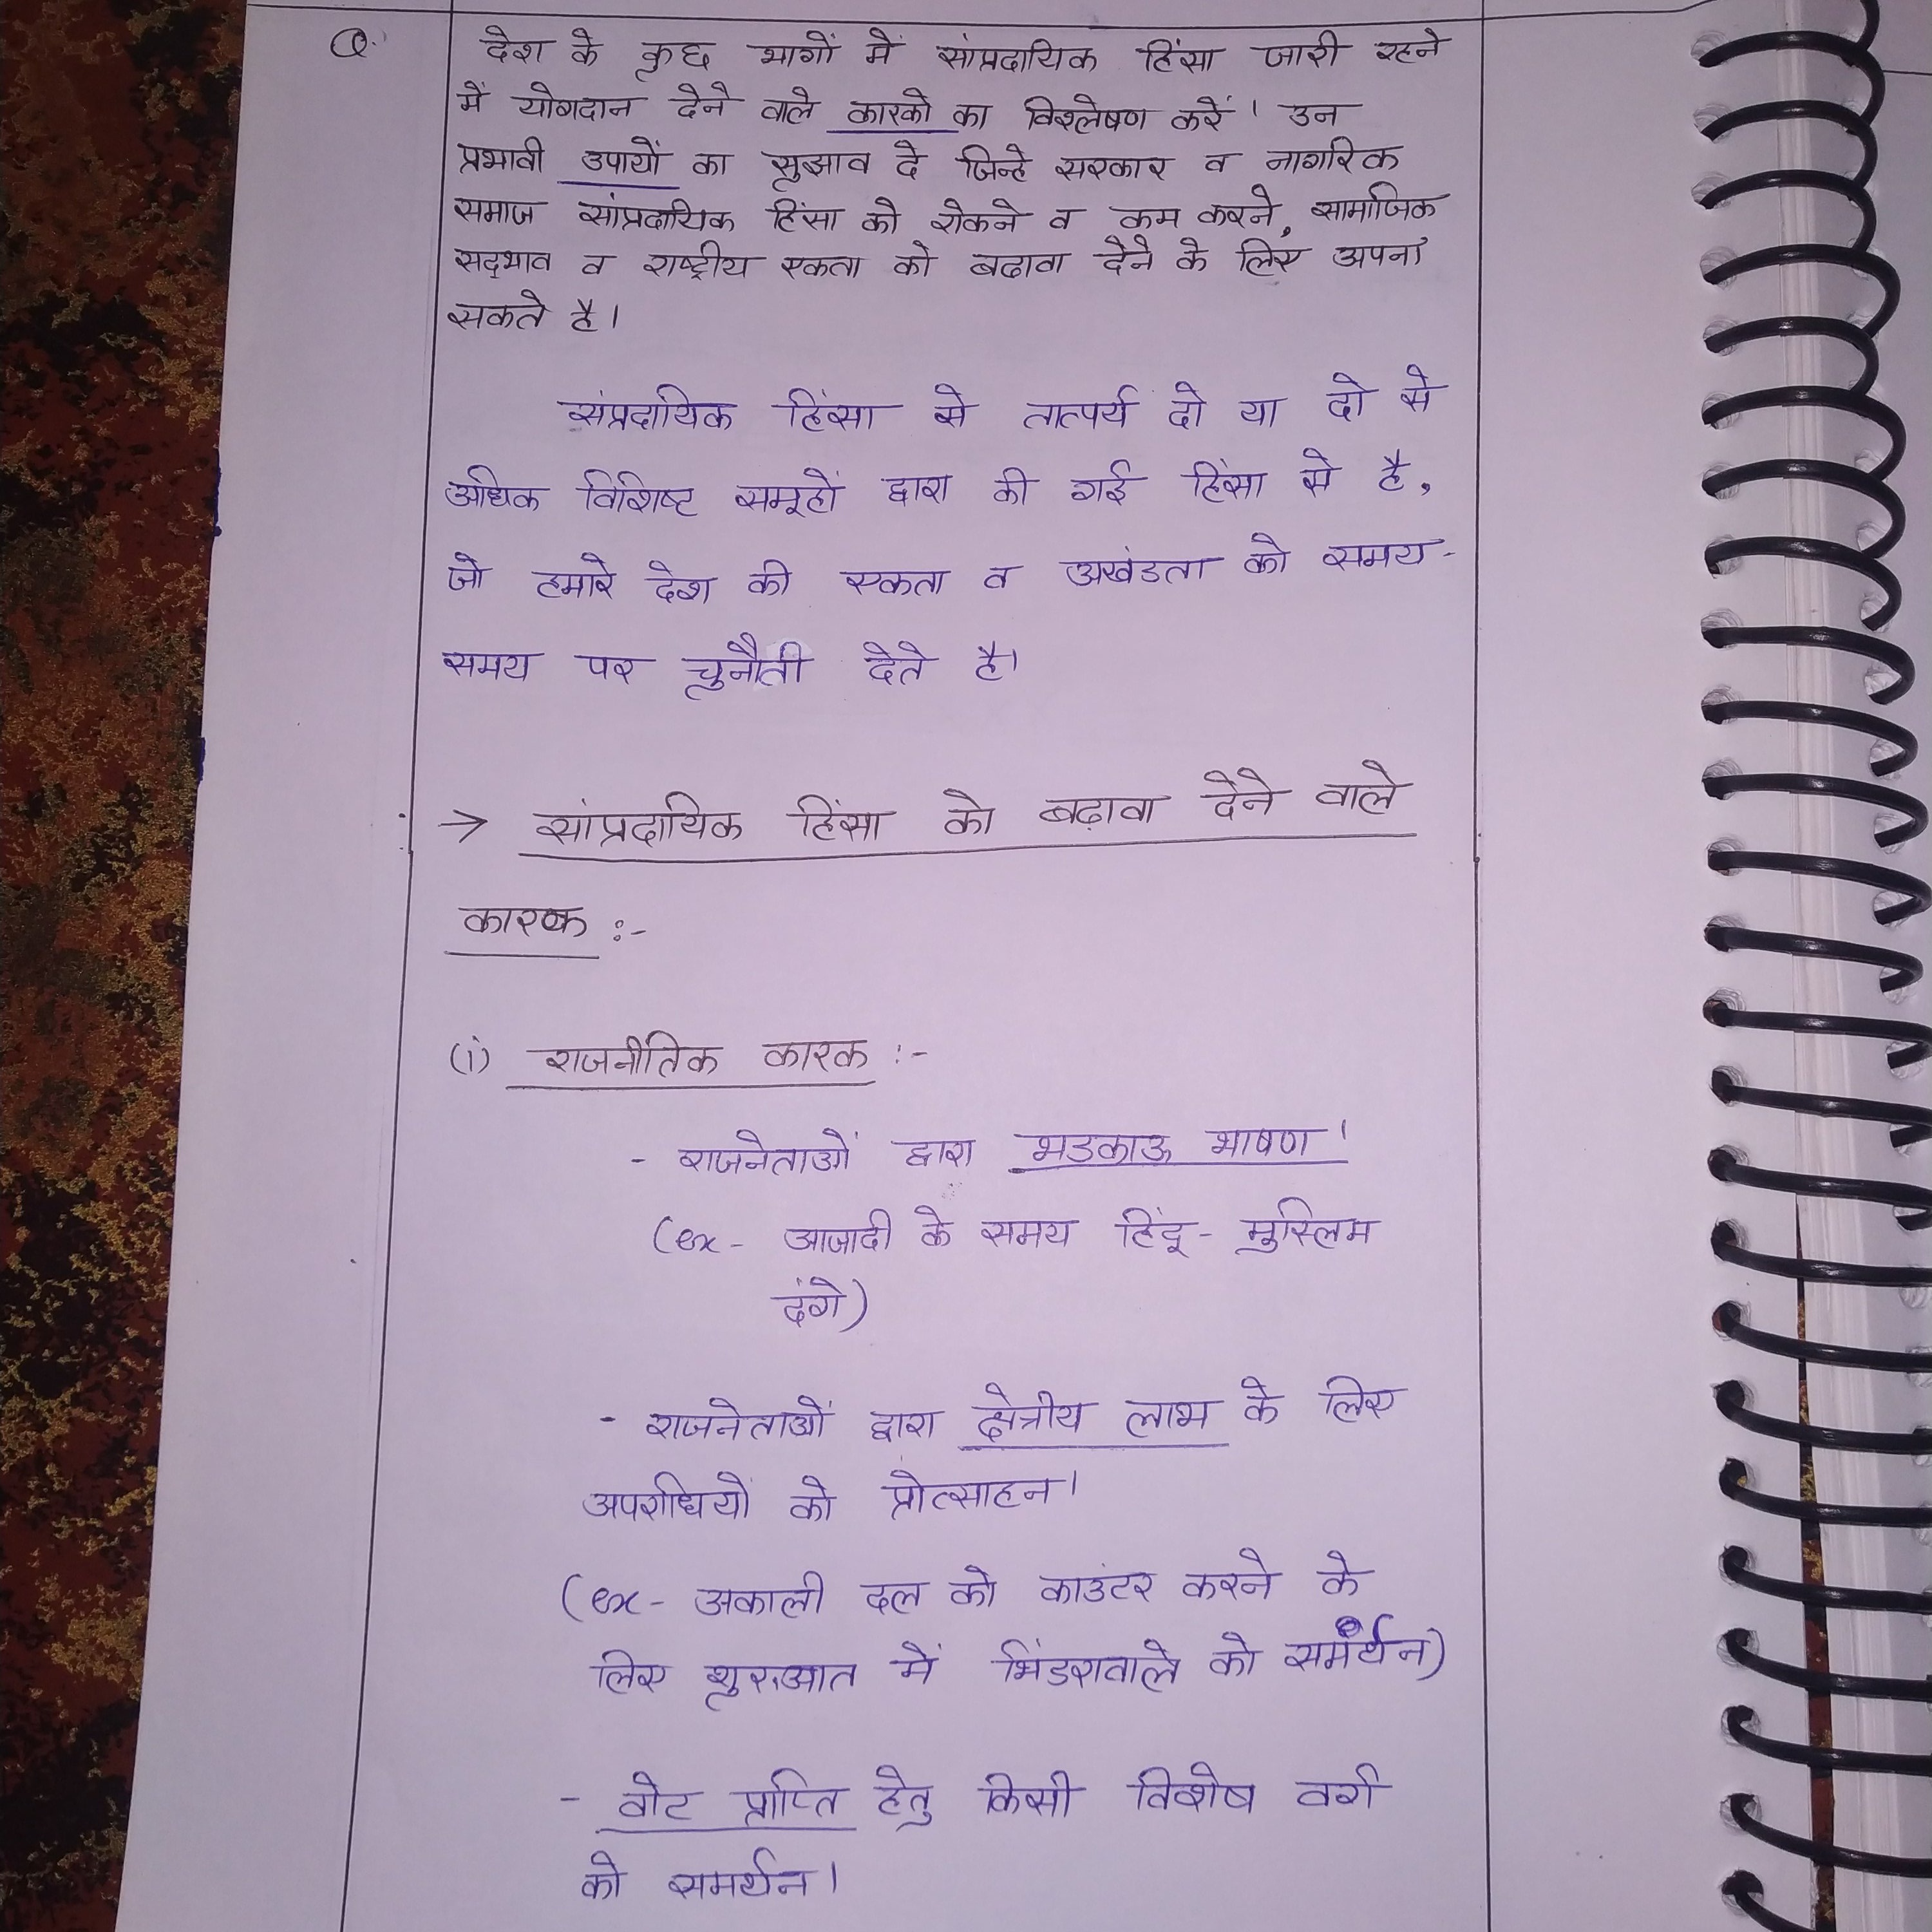 Q. देश के कुछ भागों में सांप्रदायिक हिंसा जारी रहने
में योगदान देने वाले कारको का विश्लेषण करें। उन
प्रभावी उपायों का सुझाव दे जिन्हे सरकार व नागरिक
समाज सांप्रदायिक हिंसा को रोकने व कम करने, सामाजिक
सद्भाव व राष्ट्रीय एकता को बढावा देने के लिए अपना
सकते है।
संप्रदायिक हिंसा से तात्पर्य दो या दो से
अधिक विशिष्ट समूहों द्वारा की गई हिंसा से है,
जो हमारे देश की एकता व अखंडता को समय-
समय पर चुनौती देते है।
→ सांप्रदायिक हिंसा को बढ़ावा देने वाले
कारक :-
(i) राजनीतिक कारक :-
- राजनेताओं द्वारा भडकाऊ भाषण।
(ex- आजादी के समय हिंदू- मुस्लिम
दंगे)
- राजनेताओं द्वारा क्षेत्रीय लाभ के लिए
अपराधियों को प्रोत्साहन।
(ex- अकाली दल को काउंटर करने के
लिए शुरुआत में भिंडरावाले को समर्थन)
- वोट प्राप्ति हेतु किसी विशेष वर्ग
को समर्थन।